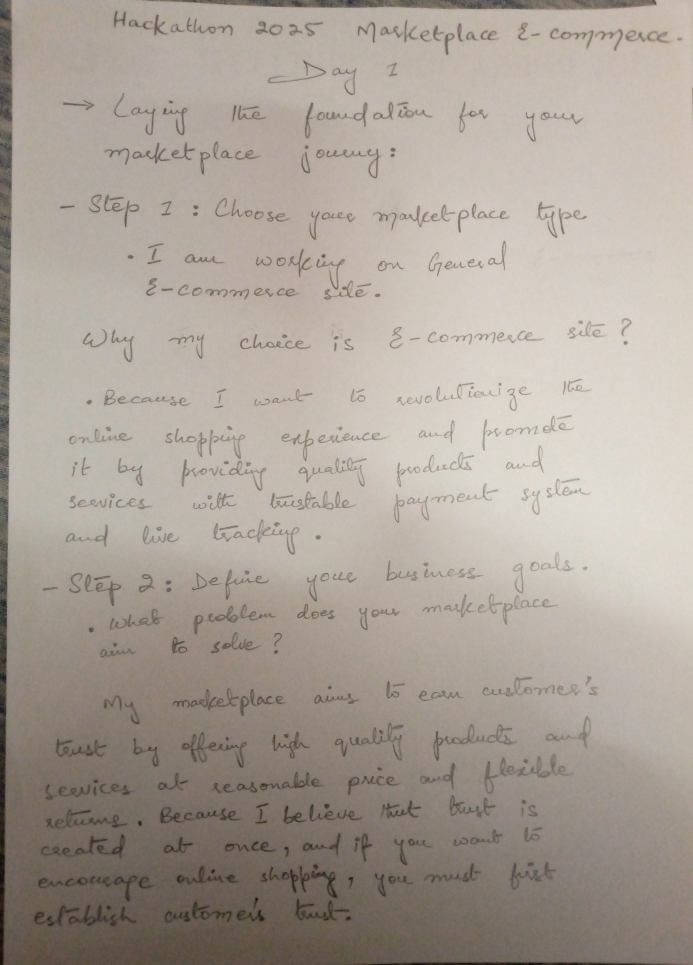 Hackathon 2025 Marketplace E-commerce.
Day 1
→ Laying the foundation for your
marketplace jouny:
- Step 1 : Choose your marketplace type
• I am working on General
E-commerce site.
Why my choice is E-commerce site?
• Because I want to revolutionize the
online shopping experience and promote
it by providing quality products and
services with trustable payment system
and live tracking.
- Step 2 : Define your business goals.
• What problem does your marketplace
aim to solve?
My marketplace aims to earn customer's
trust by offering high quality products and
services at reasonable price and flexible
returns. Because I believe that trust is
created at once, and if you want to
encourage online shopping, you must first
establish customer's trust.